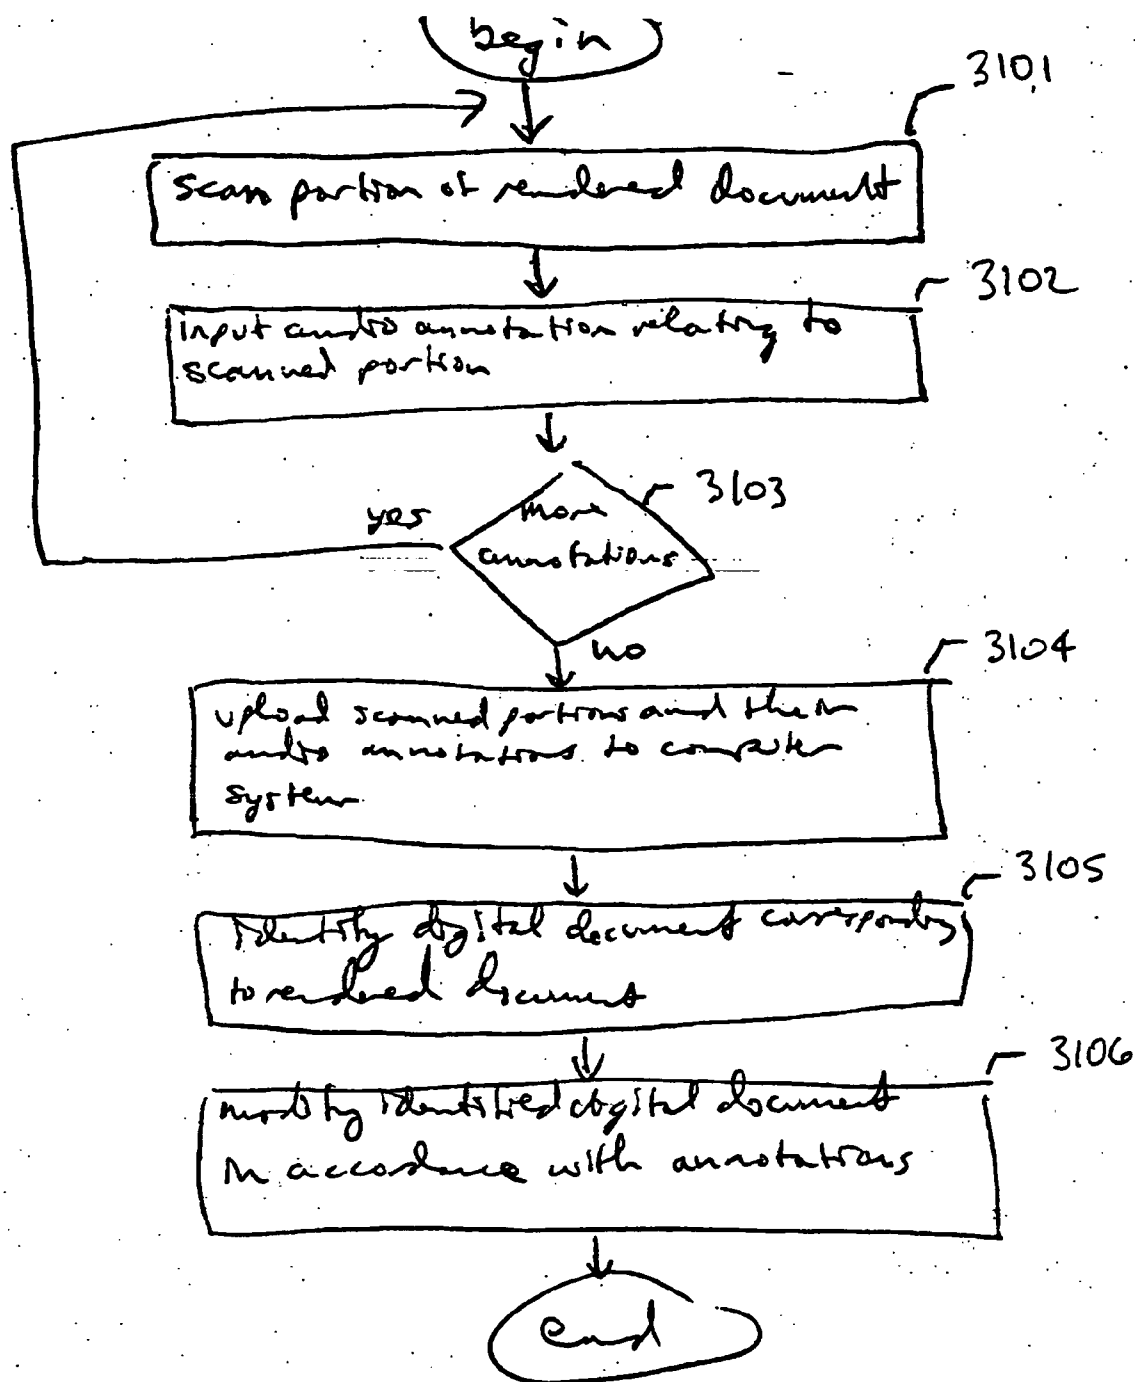 begin
3101
scan portion of rendered document
3102
input audio annotation relating to
scanned portion
3103
yes
more
annotations
no
3104
upload scanned portions and their
audio annotations to computer
system
3105
identify digital document corresponding
to rendered document
3106
modify identified digital document
in accordance with annotations
end